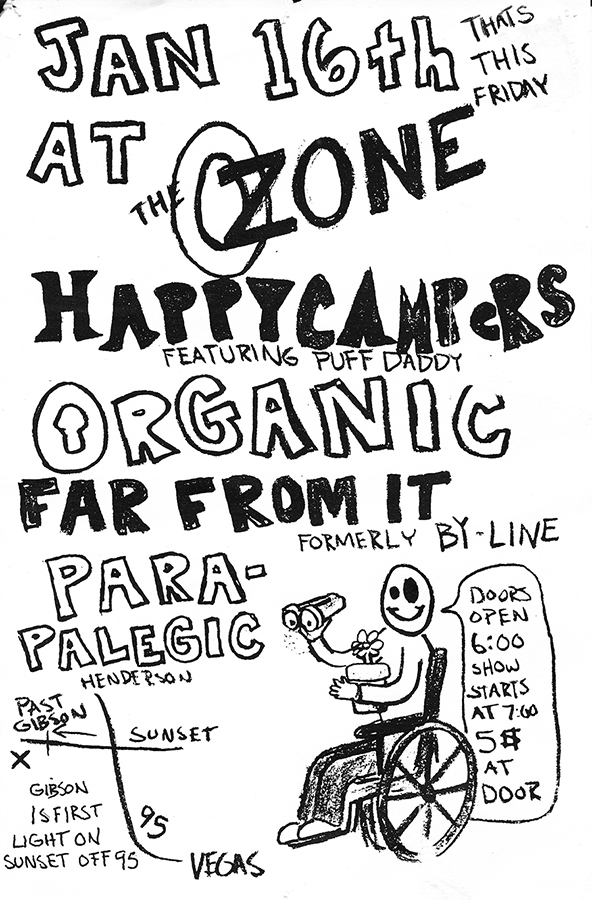 JAN 16th
THATS
THIS
FRIDAY
AT
THE OZONE
HAPPYCAMPERS
FEATURING PUFF DADDY
ORGANIC
FAR FROM IT
FORMERLY BY-LINE
PARA-
PALEGIC
HENDERSON
PAST
GIBSON
SUNSET
X
GIBSON
IS FIRST
LIGHT ON
SUNSET OFF 95
95
VEGAS
DOORS
OPEN
6:00
SHOW
STARTS
AT 7:00
5$
AT
DOOR